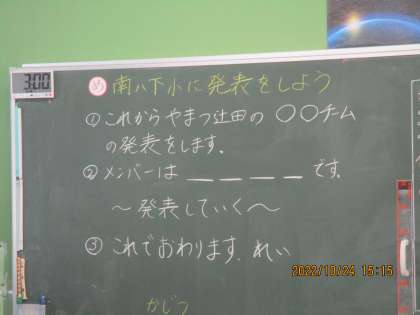 3:00
め 南八下小に発表をしよう
① これからやまつ辻田の 〇〇チーム
の発表をします。
② メンバーは ＿ ＿ ＿ ＿ です。
～発表していく～
③ これでおわります。れい
2022/10/24 15:15
かじつ